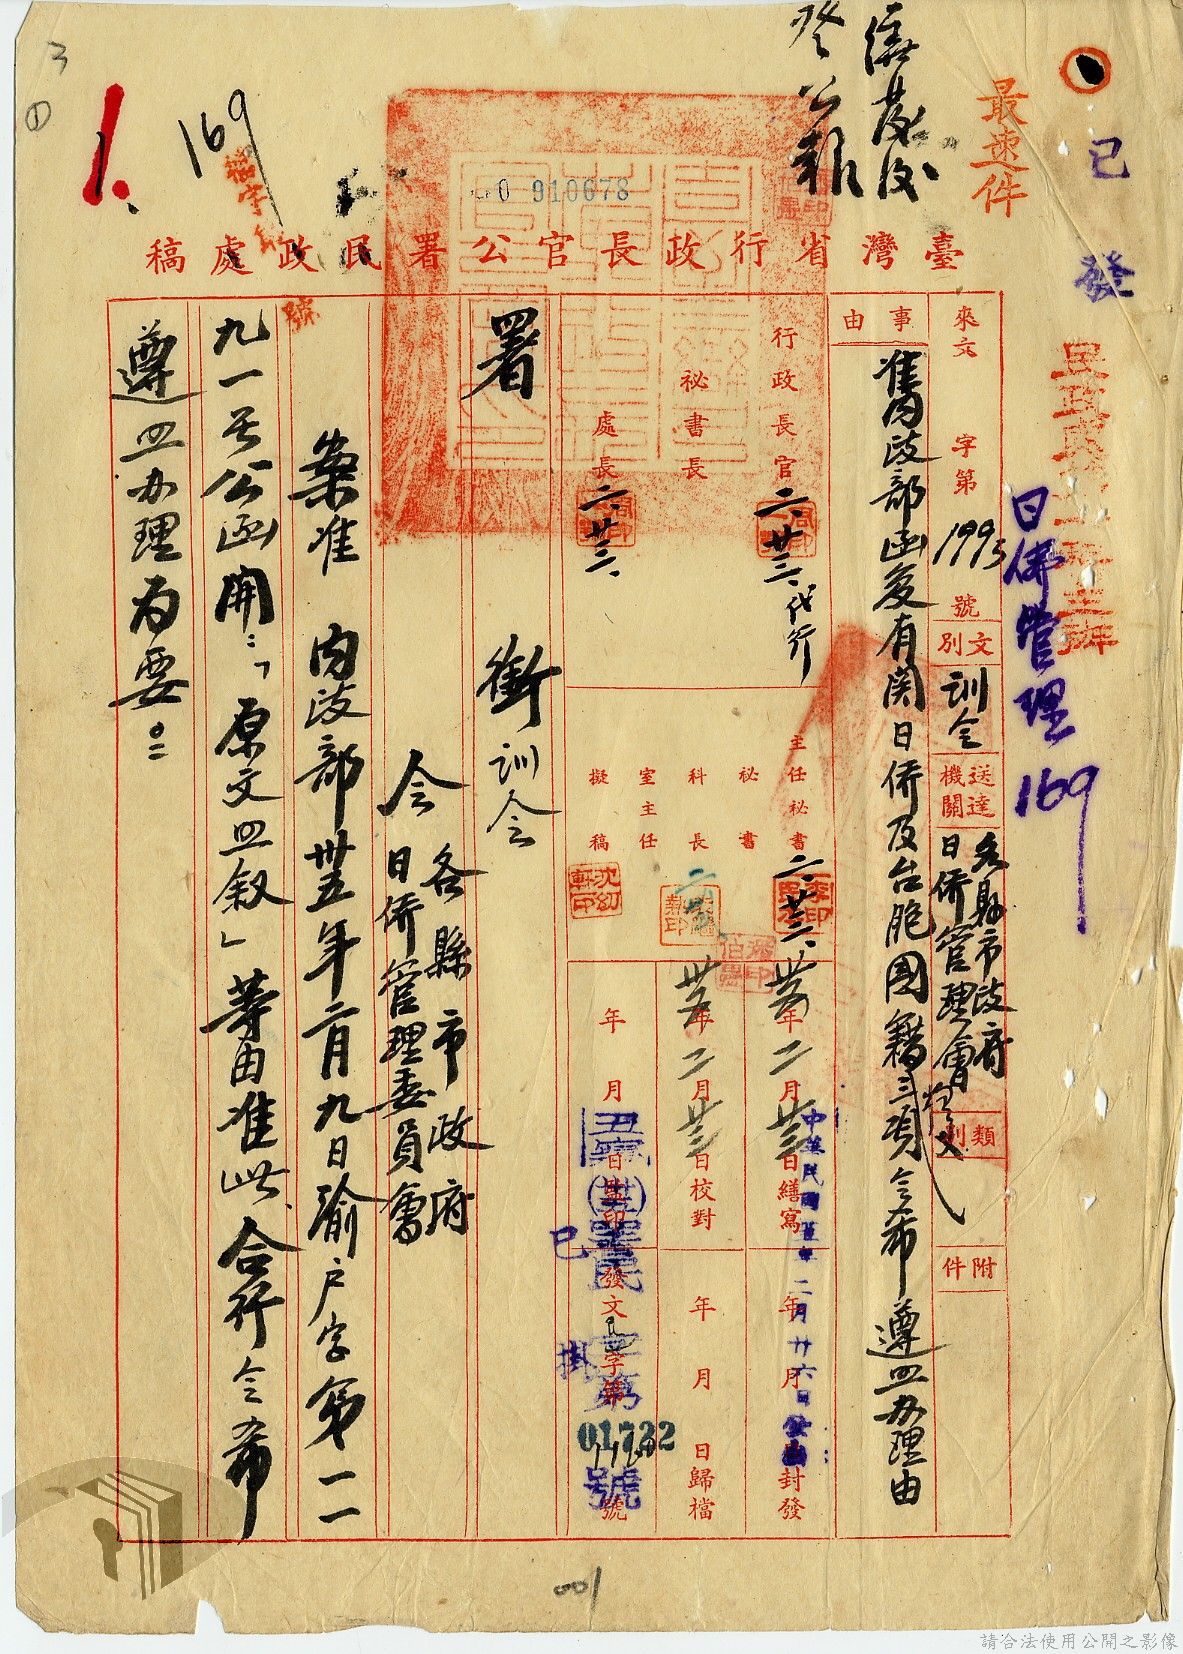 最速件
已發
日僑管理 169
3
①
1.
169
910678
登公報
臺灣省行政長官公署民政處稿
來文 字第 1995 號
文別 訓令
送達機關 各縣市政府 日僑管理會
類別
附件
事由
准內政部函復有関日僑及台胞国籍三項令希遵照办理由
行政長官 二、廿三、代行
秘書長
處長 二、廿三、
主任秘書 二、廿三、
秘書
科長
室主任
擬稿
卅五年二月廿三日繕寫
卅五年二月廿三日校對
年 月 日蓋印
中華民國卅五年二月廿六日
年 月 日封發
年 月 日歸檔
發文 字第 01722 號
已掛
署 銜訓令
令 各縣市政府
日僑管理委員會
案准 內政部卅五年二月九日渝户字第一一
九一号公函開：「原文照叙」等由准此合行令希
遵照办理为要。
001
請合法使用公開之影像